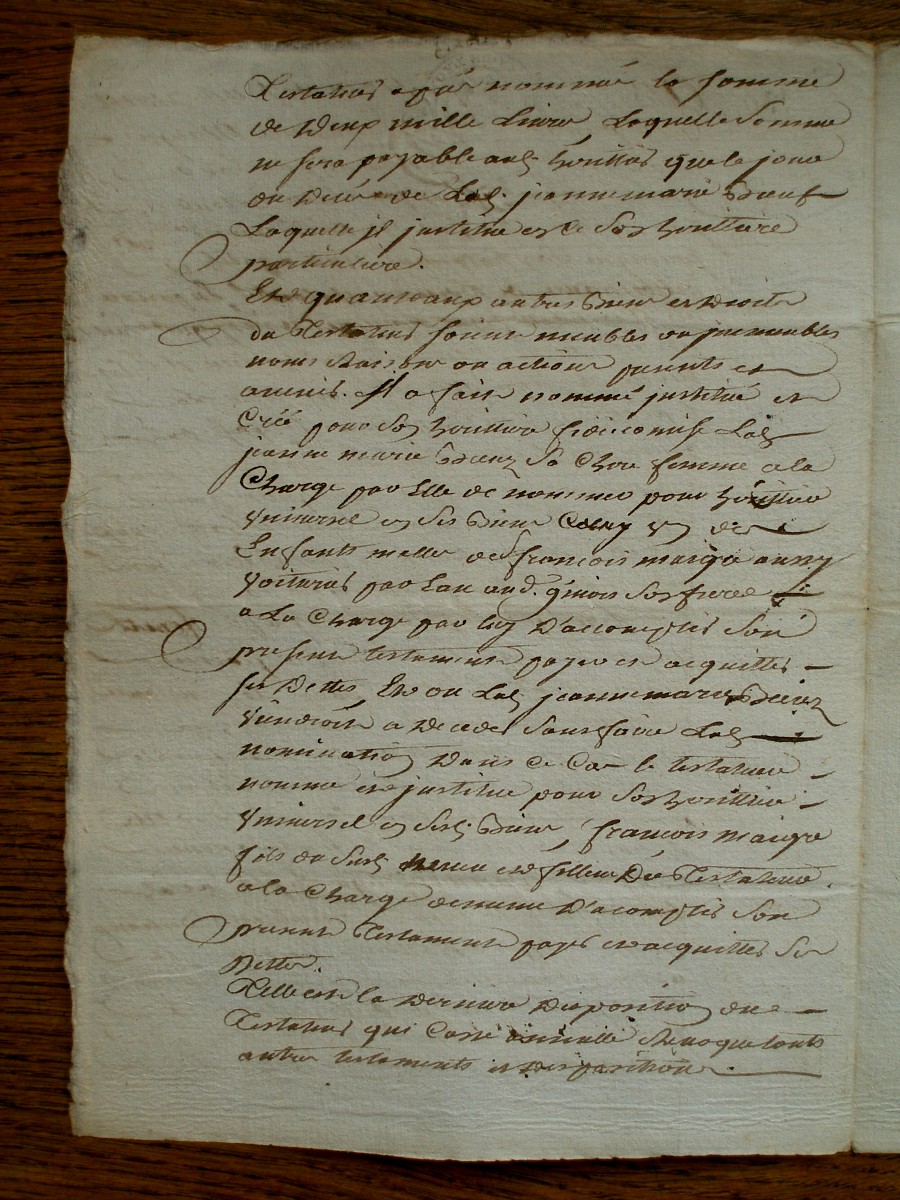 Testateur apres nommée la somme
de deux mille Livres Laquelle Somme
ne sera payable aud. heritier que le jour
du deces de Lad. jeanne marie
Laquelle jl jnstitue et Sон heritiere
particuliere.
Et quant aux autres biens et droits
du Testateur soient meubles ou jmmeubles
noms Raisons ou actions presents et
avenir. Jl a fait nommé jnstitué et
Créé pour Son heritiere fideicomise Lad.
jeanne marie Sa Chere femme a la
Charge par Elle de nommer pour heritier
Vniversel en Ses biens Celuy Vn des
Enfants malles de francois maigre aussy
voiturier par Eau aud. Son frere
a La Charge par luy D'accomplir Son
present testament payer et acquitter
ses Dettes Et ou Lad. jeanne marie
Viendroit a Deceder Sans faire Lad.
nomination Dans Ce Cas le testateur
nomme et jnstitue pour Son heritier
Vniversel en Sesd. biens francois maigre
fils du Susd. et filleul Du Testateur
a la Charge de mesme D'acomplir Son
present Testament payer et acquitter Ses
Dettes.
Telle est la Derniere Disposition du
Testateur qui Casse annulle Revoque touts
autres testaments et Dispositions